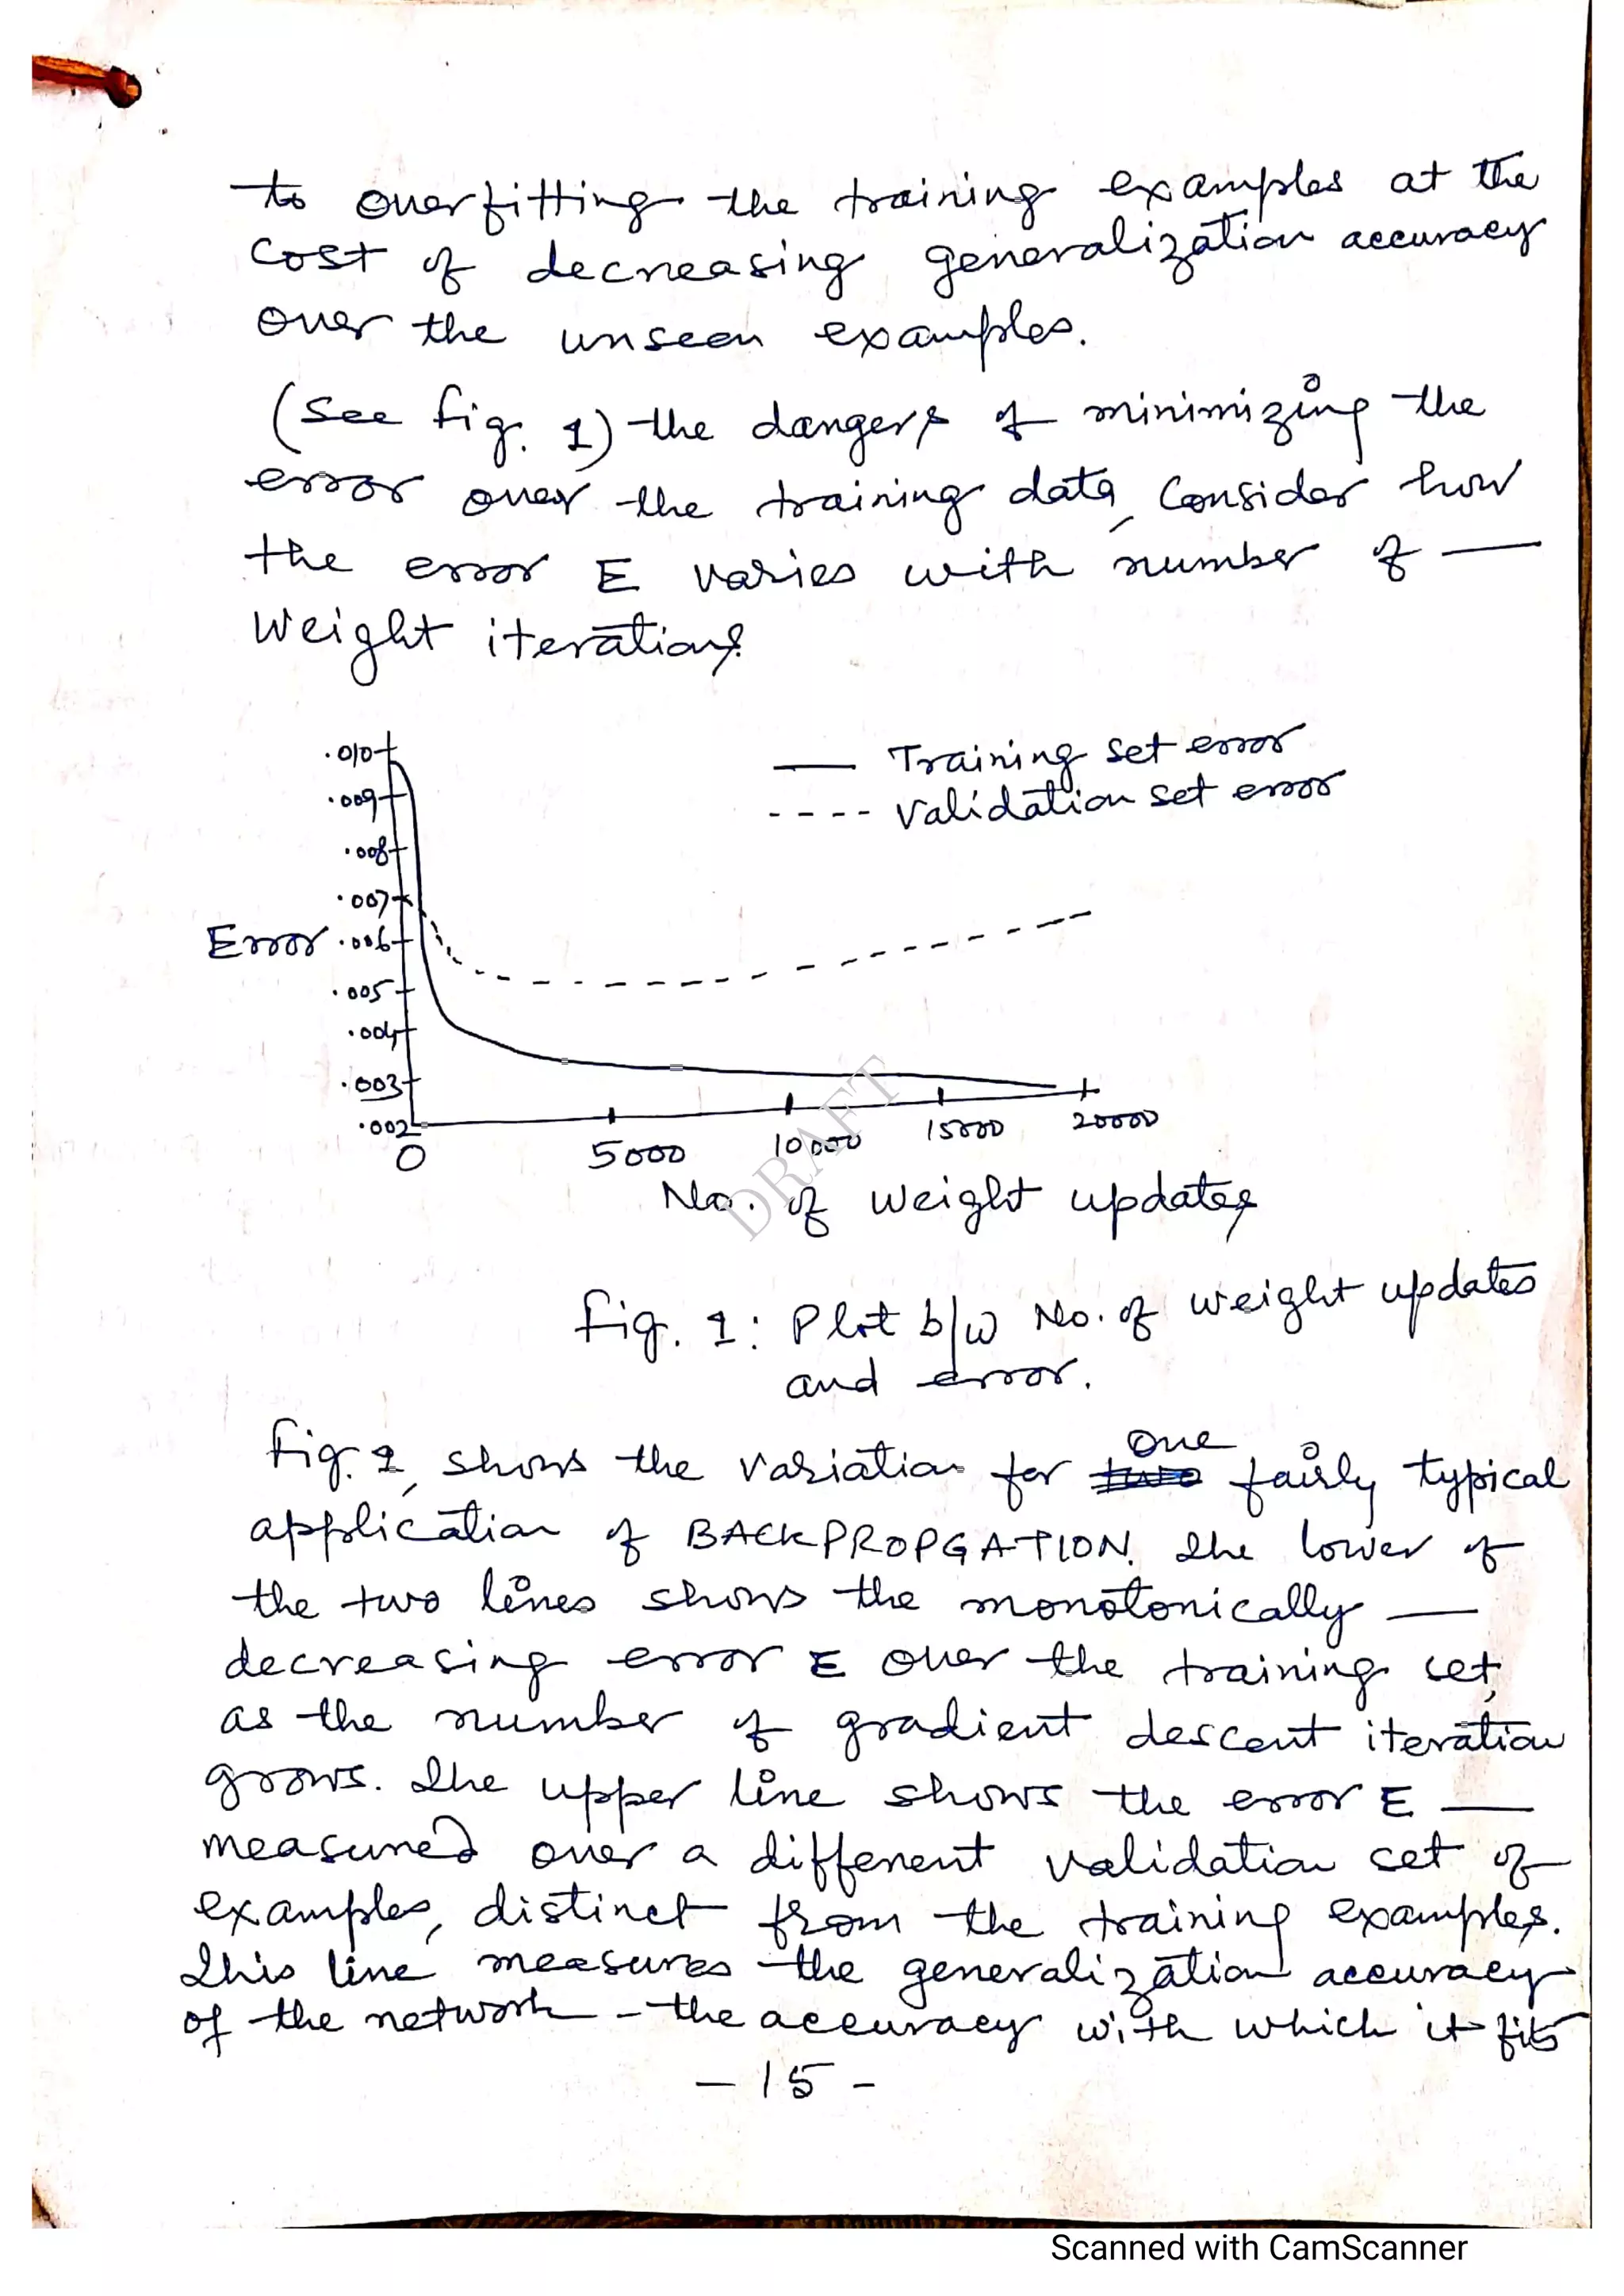 to overfitting the training examples at the
cost of decreasing generalization accuracy
over the unseen examples.
(See fig. 1) the dangers of minimizing the
error over the training data, Consider how
the error E varies with number of —
Weight iterations.
.010
.009
.008
.007
.006
.005
.004
.003
.002
Error
—— Training set error
---- Validation set error
0 5000 10000 15000 20000
No. of weight updates
DRAFT
Fig. 1: Plot b/w No. of weight updates
and error.
Fig. 1, shows the variation for one fairly typical
application of BACKPROPGATION. The lower of
the two lines shows the monotonically —
decreasing error E over the training set,
as the number of gradient descent iteration
grows. The upper line shows the error E —
measured over a different validation set of
examples, distinct from the training examples.
This line measures the generalization accuracy
of the network - the accuracy with which it fits
- 15 -
Scanned with CamScanner